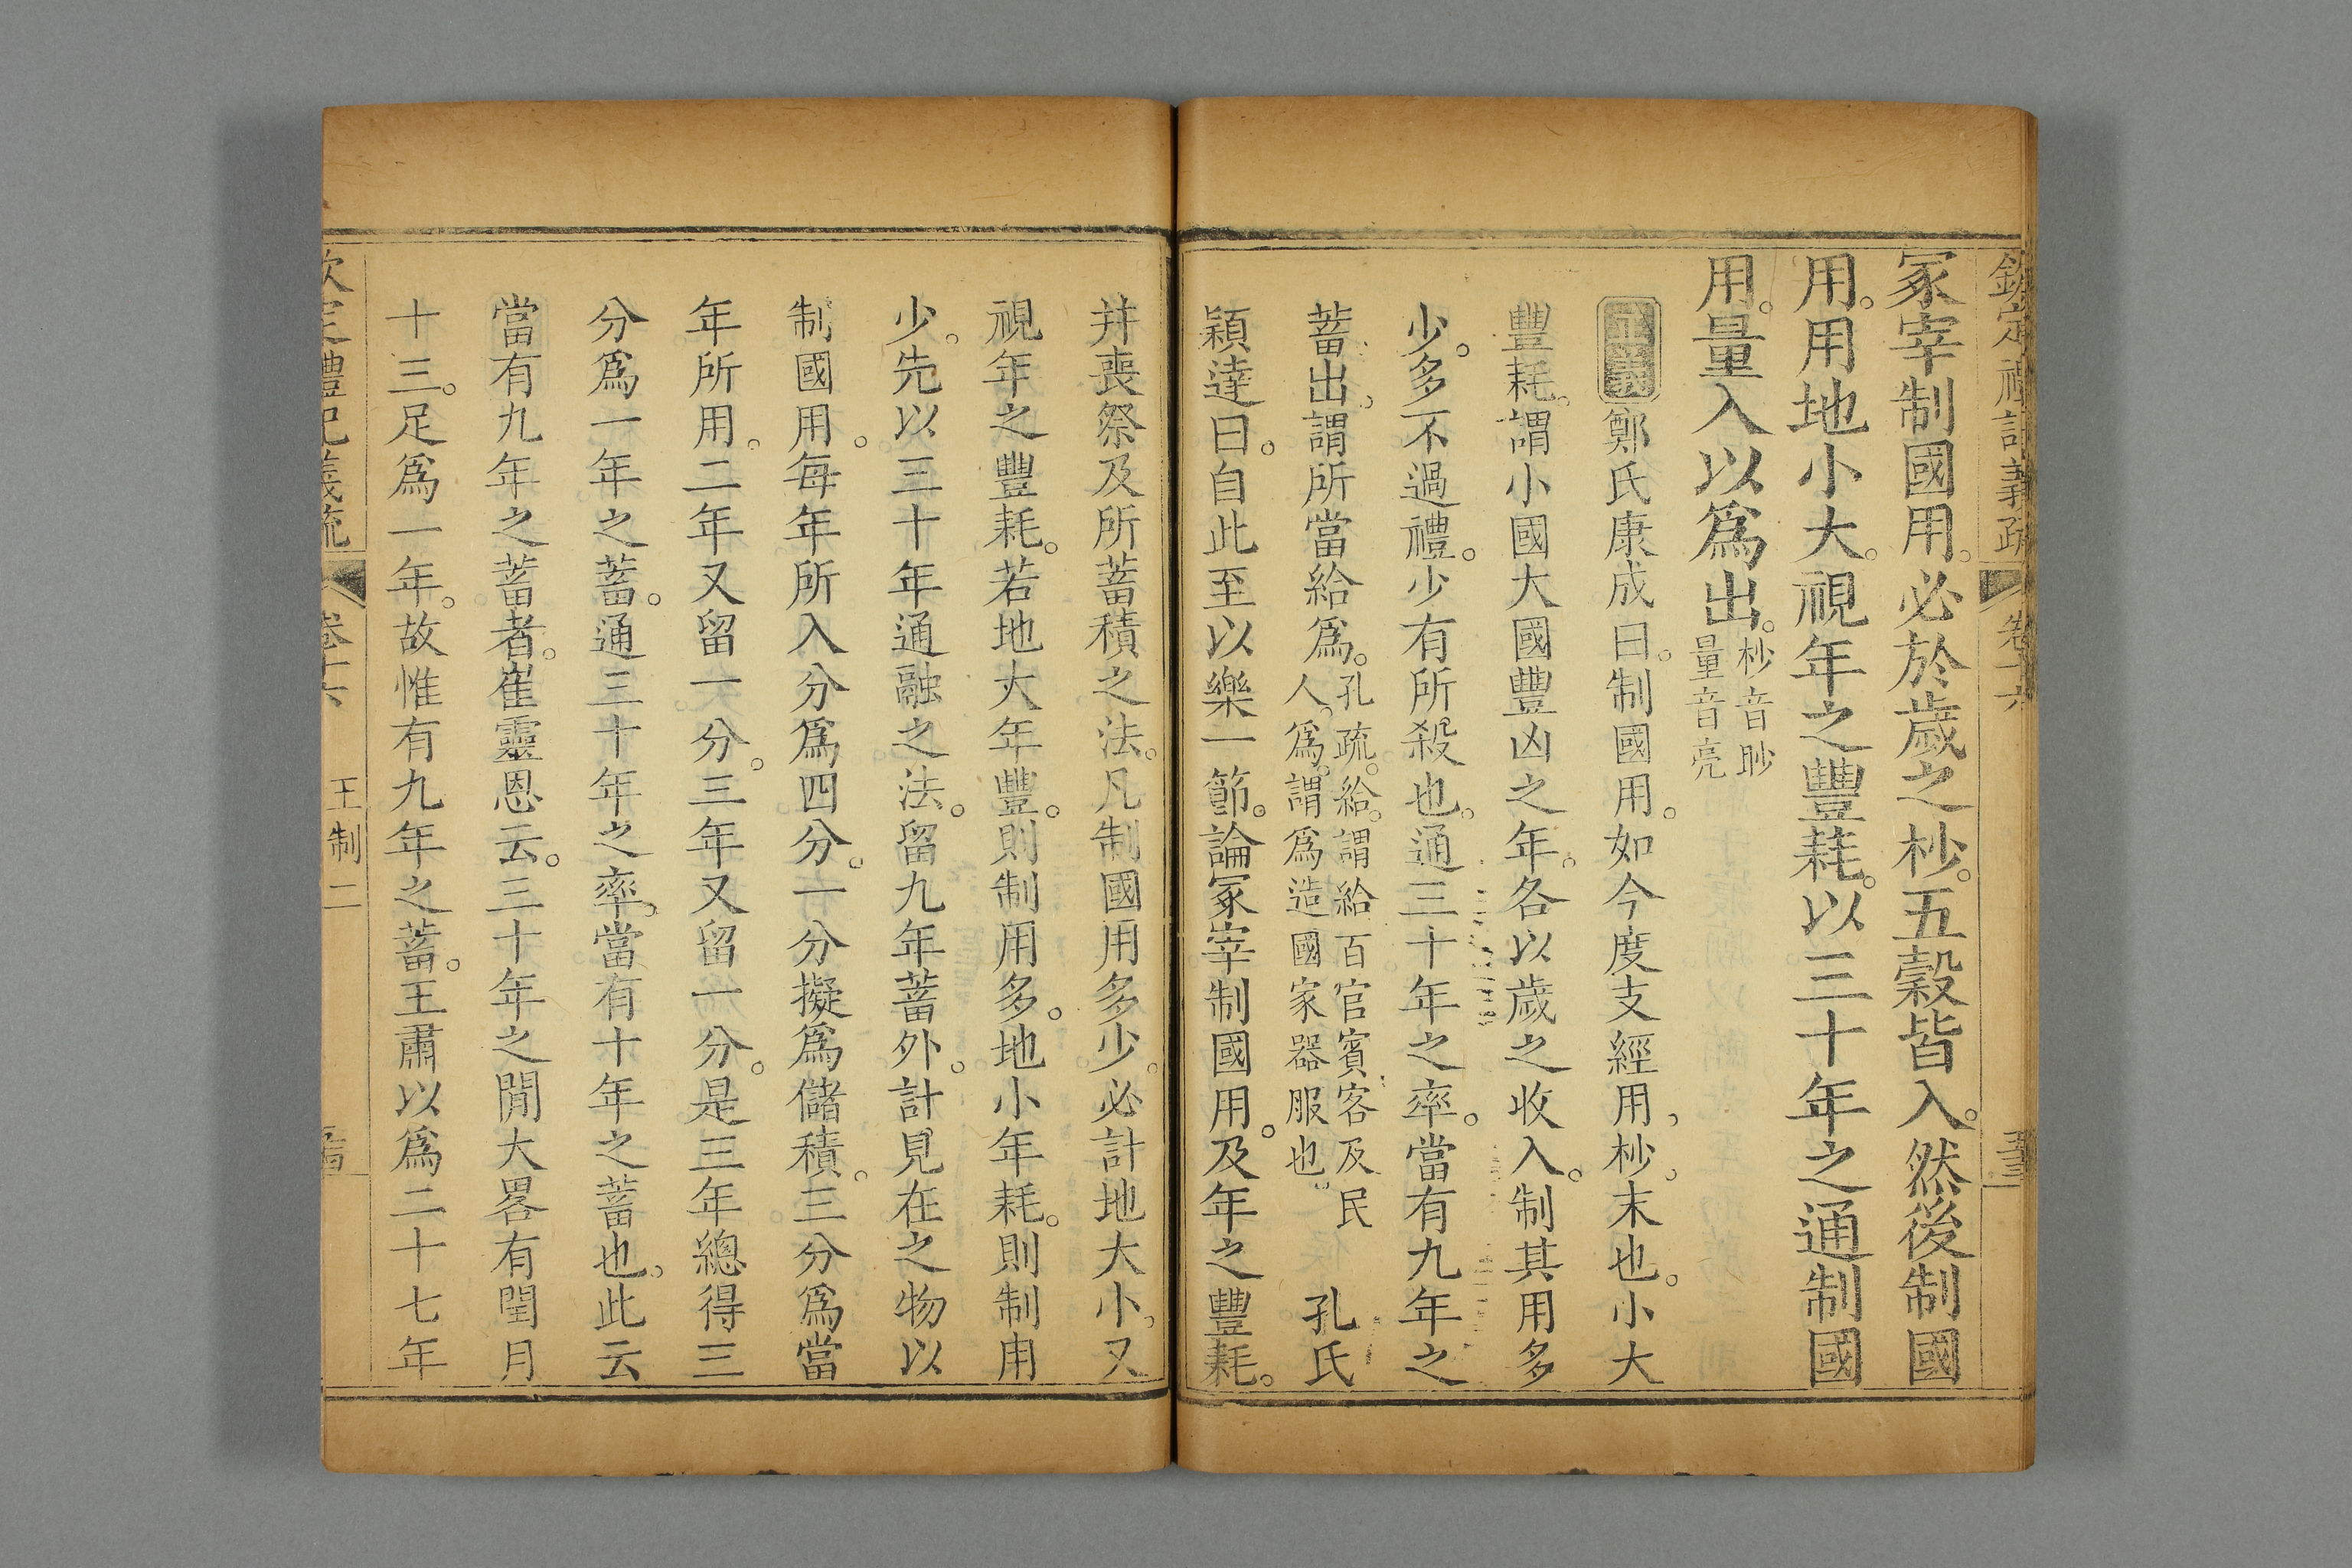 欽定禮記義疏 卷十六
冢宰制國用。必於歲之杪。五穀皆入。然後制國
用。用地小大。視年之豐耗。以三十年之通制國
用。量入以爲出。杪音眇
量音亮
正義鄭氏康成曰。制國用。如今度支經用。杪。末也。小大
豐耗。謂小國大國豐凶之年。各以歲之收入。制其用多
少。多不過禮。少有所殺也。通三十年之率。當有九年之
蓄出。謂所當給爲。孔疏。給。謂給百官賓客及民
人。爲。謂爲造國家器服也。 孔氏
穎達曰。自此至以樂一節。論冢宰制國用。及年之豐耗。
幷喪祭及所蓄積之法。凡制國用多少。必計地大小。又
視年之豐耗。若地大年豐。則制用多。地小年耗。則制用
少。先以三十年通融之法。留九年蓄外。計見在之物以
制國用。每年所入分爲四分。一分擬爲儲積。三分爲當
年所用。二年又留一分。三年又留一分。是三年總得三
分爲一年之蓄。通三十年之率。當有十年之蓄也。此云
當有九年之蓄者。崔靈恩云。三十年之閒大畧有閏月
十三。足爲一年。故惟有九年之蓄。王肅以爲二十七年
欽定禮記義疏 卷十六 王制二